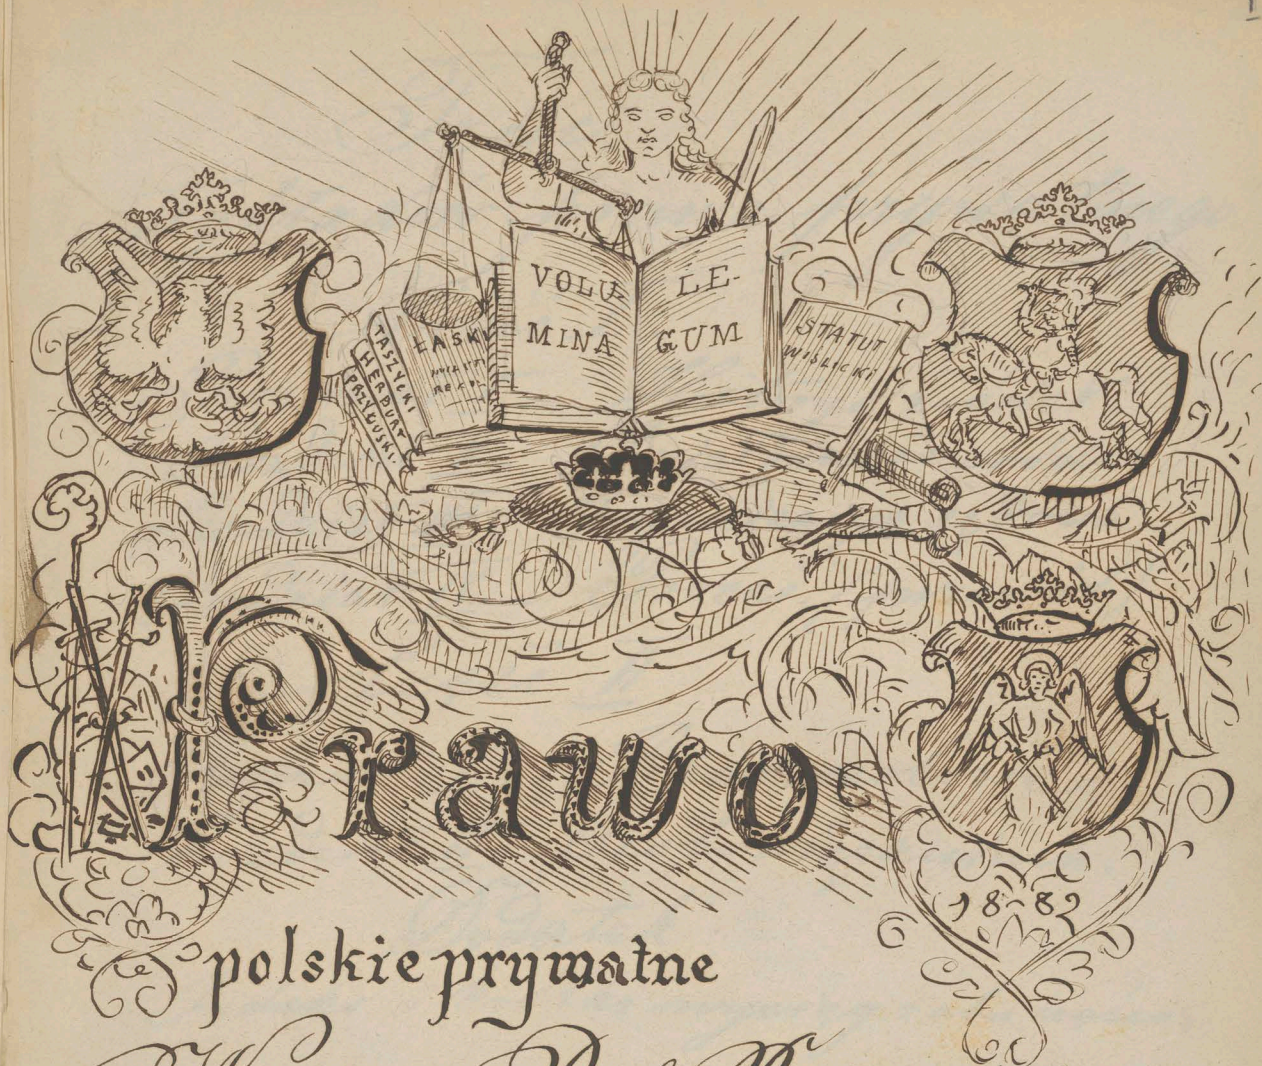 VOLU-
MINA
LE-
GUM
TASZYCKI
HERBURT
PRZYŁUSKI
ŁASKI
STATUT
WIŚLICKI
Prawo
1882
polskie prywatne